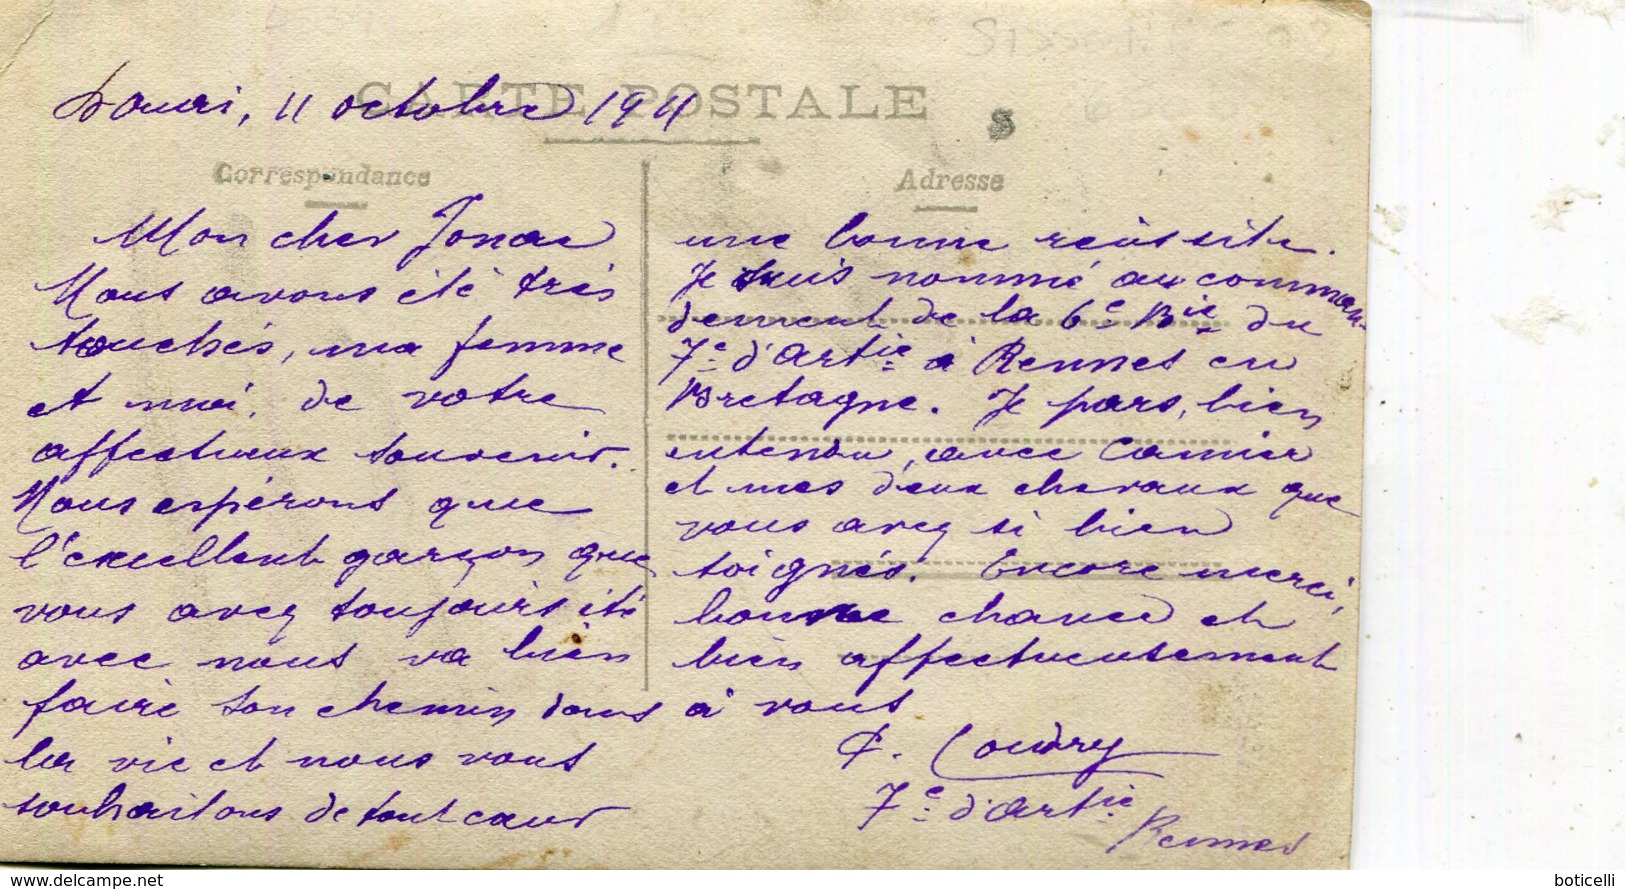 CARTE POSTALE
Douai, 11 octobre 1911
S
Correspondance
Adresse
Mon cher
Nous avons été très
touchés, ma femme
et moi, de votre
affectueux souvenir.
Nous espérons que
l'excellent garçon que
vous avez toujours été
avec nous va bien
faire son chemin dans
la vie et nous vous
souhaitons de tout cœur
une bonne réussite.
Je suis nommé au comman-
dement de la 6e Bie du
7e d'Artie à Rennes en
Bretagne. Je pars, bien
entendu, avec
et mes deux chevaux que
vous avez si bien
soignés. Encore merci,
bonne chance et
bien affectueusement
à vous
Coudry
7e d'Artie
Rennes
www.delcampe.net
boticelli